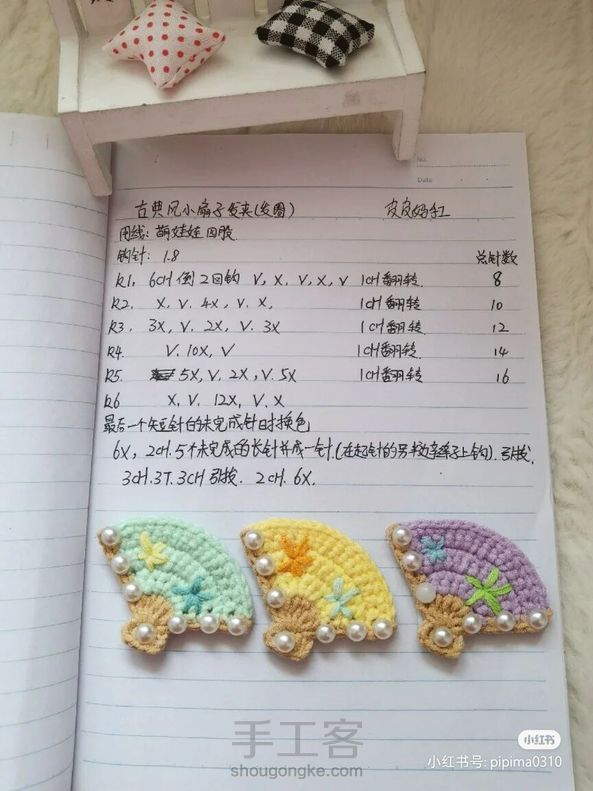 No.
Date
古典风小扇子发夹(发圈) 皮皮妈红
用线:萌娃娃四股
钩针:1.8 总针数
R1. 6CH 倒2回钩 V, X, V, X, V 1CH翻转 8
R2. X, V. 4X, V. X, 1CH翻转 10
R3. 3X, V. 2X, V. 3X 1CH翻转 12
R4. V. 10X, V 1CH翻转 14
R5. 5X, V. 2X, V. 5X 1CH翻转 16
R6 X, V. 12X, V. X
最后一个短针的未完成针时换色
6X, 2CH. 5个未完成的长针并成一针.(在起针的另半边辫子上钩). 引拔.
3CH. 3T. 3CH 引拔. 2CH. 6X.
手工客
shougongke.com
小红书
小红书号: pipima0310